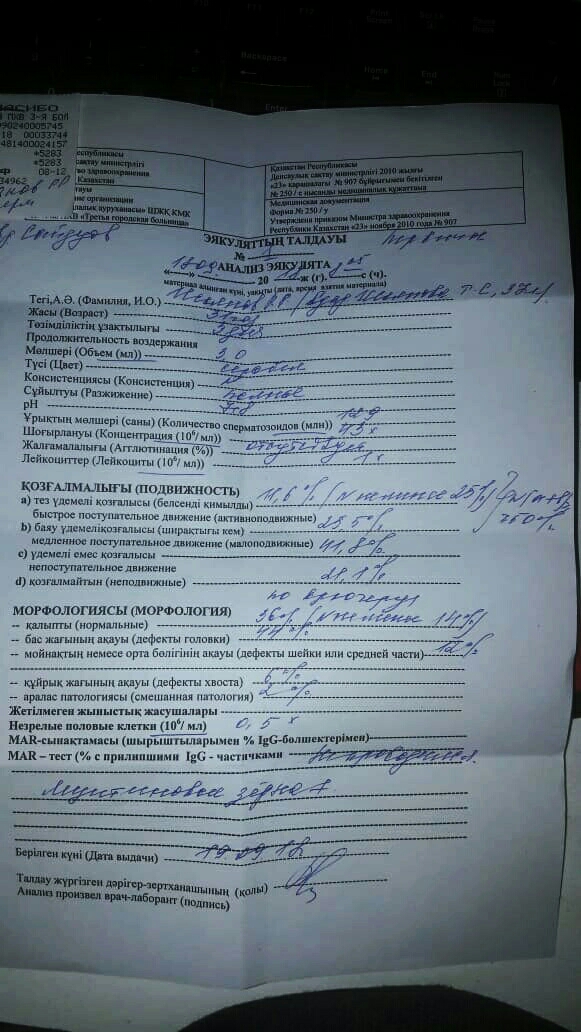 ПХВ 3-Я БОЛ
990240005745
18 00033744
481400024157
*5283
*5283
08-12
34962
республикасы
сақтау министрлігі
во здравоохранения
Казахстан
ние организации
ШЖҚ КМК
«Третья городская больница»
Қазақстан Республикасы
Денсаулық сақтау министрінің 2010 жылғы
«23» қарашадағы № 907 бұйрығымен бекітілген
№ 250 / е нысанды медициналық құжаттама
Медицинская документация
Форма № 250 / у
Утверждена приказом Министра здравоохранения
Республики Казахстан «23» ноября 2010 года № 907
ЭЯКУЛЯТТЫҢ ТАЛДАУЫ
№
АНАЛИЗ ЭЯКУЛЯТА
20 ж (г). с (ч).
материал алынған күні, уақыты (дата, время взятия материала)
Тегі,А.Ә. (Фамилия, И.О.)
Жасы (Возраст)
Төзімділіктің ұзақтылығы
Продолжительность воздержания
Мөлшері (Объем (мл)) 3,0
Түсі (Цвет)
Консистенциясы (Консистенция)
Сұйылтуы (Разжижение) полное
рН 7,8
Ұрықтың мөлшері (саны) (Количество сперматозоидов (млн)) 129
Шоғырлануы (Концентрация (10⁶/ мл)) 43 х
Жалғамалалығы (Агглютинация (%)) отсутствует
Лейкоциттер (Лейкоциты (10⁶ / мл)) 1 х
ҚОЗҒАЛМАЛЫҒЫ (ПОДВИЖНОСТЬ)
а) тез үдемелі қозғалысы (белсенді қимылды) 11,6 % (N не менее 25%)
быстрое поступательное движение (активноподвижные)
b) баяу үдемеліқозғалысы (ширақтығы кем) 25,5%
медленное поступательное движение (малоподвижные)
с) үдемелі емес қозғалысы 41,8%
непоступательное движение
d) қозғалмайтын (неподвижные) 21,1%
по Крюгеру
МОРФОЛОГИЯСЫ (МОРФОЛОГИЯ)
-- қалыпты (нормальные) 36% (N не менее 14%)
-- бас жағының ақауы (дефекты головки) 44%
-- мойнақтың немесе орта бөлігінің ақауы (дефекты шейки или средней части) 12%
-- құйрық жағының ақауы (дефекты хвоста) 6%
-- аралас патологиясы (смешанная патология) 2%
Жетілмеген жыныстық жасушалары
Незрелые половые клетки (10⁶/ мл) 0,5 х
MAR-сынақтамасы (шырыштыларымен % IgG-бөлшектерімен)
MAR – тест (% с прилипшими IgG - частичками не проводился
Лецитиновые зёрна +
Берілген күні (Дата выдачи) 19 09 18
Талдау жүргізген дәрігер-зертханашының (қолы)
Анализ произвел врач-лаборант (подпись)